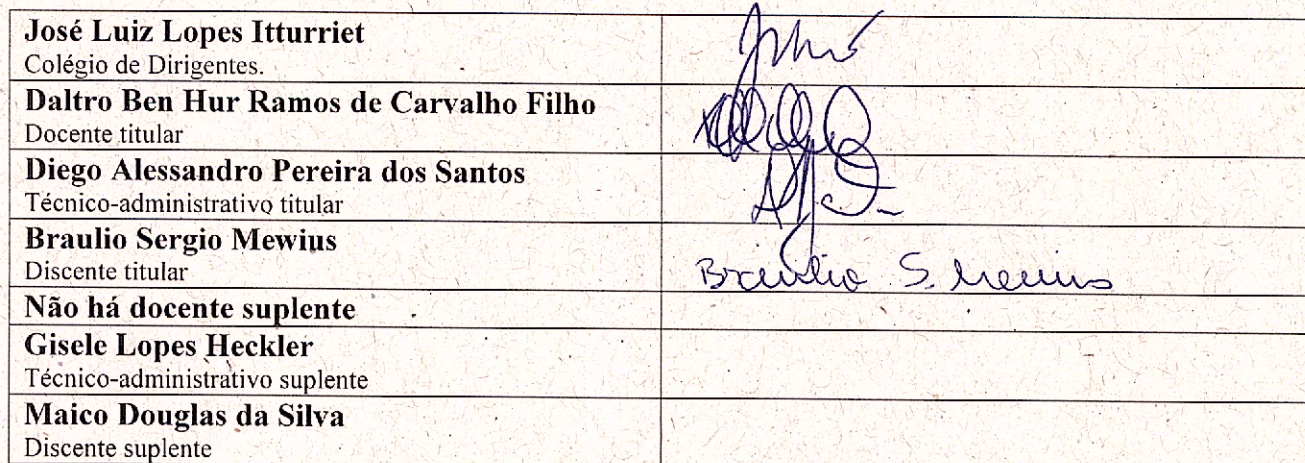 José Luiz Lopes Itturriet
Colégio de Dirigentes.
Daltro Ben Hur Ramos de Carvalho Filho
Docente titular
Diego Alessandro Pereira dos Santos
Técnico-administrativo titular
Braulio Sergio Mewius
Discente titular
Braulio S. Mewius
Não há docente suplente
Gisele Lopes Heckler
Técnico-administrativo suplente
Maico Douglas da Silva
Discente suplente